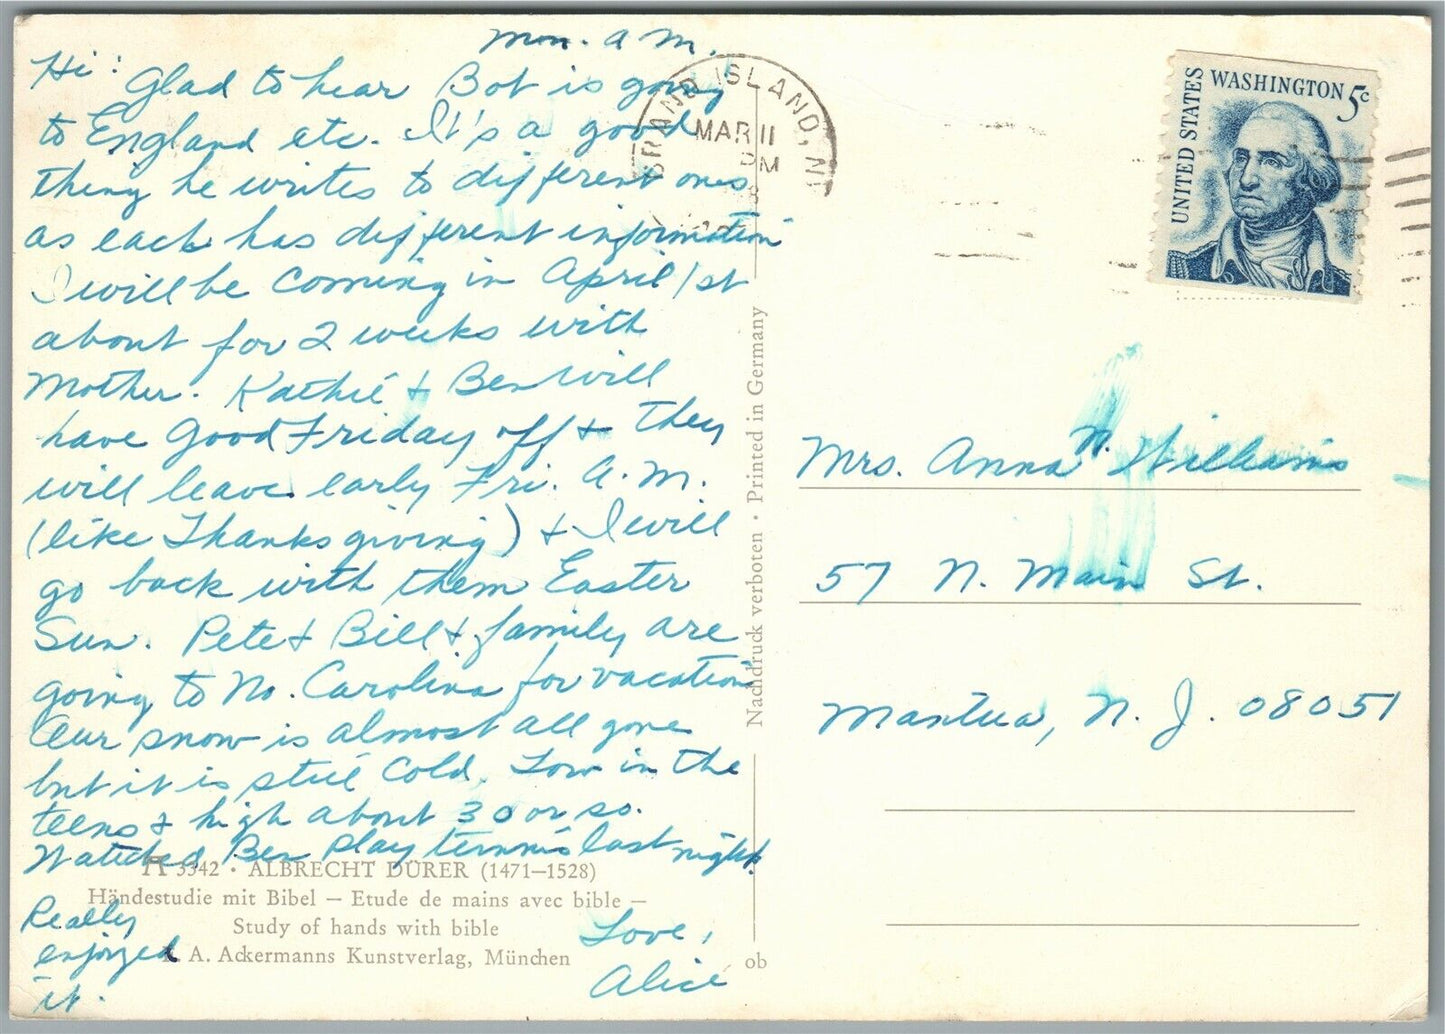 Mon. a m.
Hi: Glad to hear Bob is going
to England etc. It's a good
thing he writes to different ones
as each has different information
I will be coming in April 1st
about for 2 weeks with
Mother. Kathie & Ben will
have Good Friday off & they
will leave early Fri. A.M.
(like Thanksgiving) & I will
go back with them Easter
Sun. Pete & Bill & family are
going to No. Carolina for vacation
Our snow is almost all gone
but it is still cold. Low in the
teens & high about 30 or so.
Watched Ben play tennis last night.
Really
enjoyed
it.
Love,
Alice
3342 · ALBRECHT DÜRER (1471—1528)
Händestudie mit Bibel — Etude de mains avec bible —
Study of hands with bible
A. Ackermanns Kunstverlag, München
ob
Nachdruck verboten · Printed in Germany
GRAND ISLAND, N
MAR 11
PM
UNITED STATES
WASHINGTON 5c
Mrs. Anna N. Williams
57 N. Main St.
Mantua, N. J. 08051